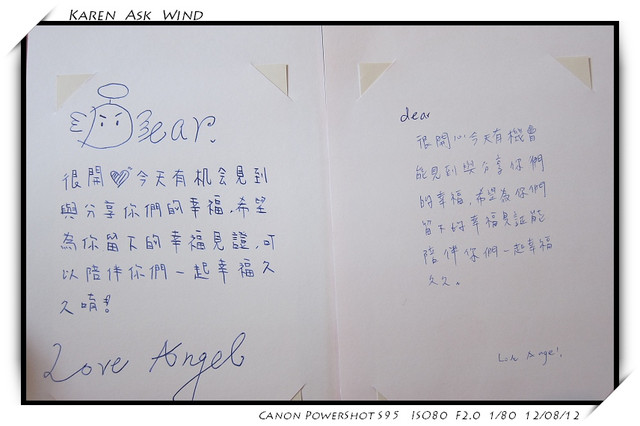 KAREN ASK WIND
Dear.
很開♡今天有机会見到
與分享你們的幸福,希望
為你留下的幸福見證,可
以陪伴你們一起幸福久
久唷!
Love Angel
dear
很開心今天有機會
能見到與分享你們
的幸福,希望為你們
留下的幸福見証能
陪伴你們一起幸福
久久。
Angel.
CANON POWERSHOT S95 ISO80 F2.0 1/80 12/08/12